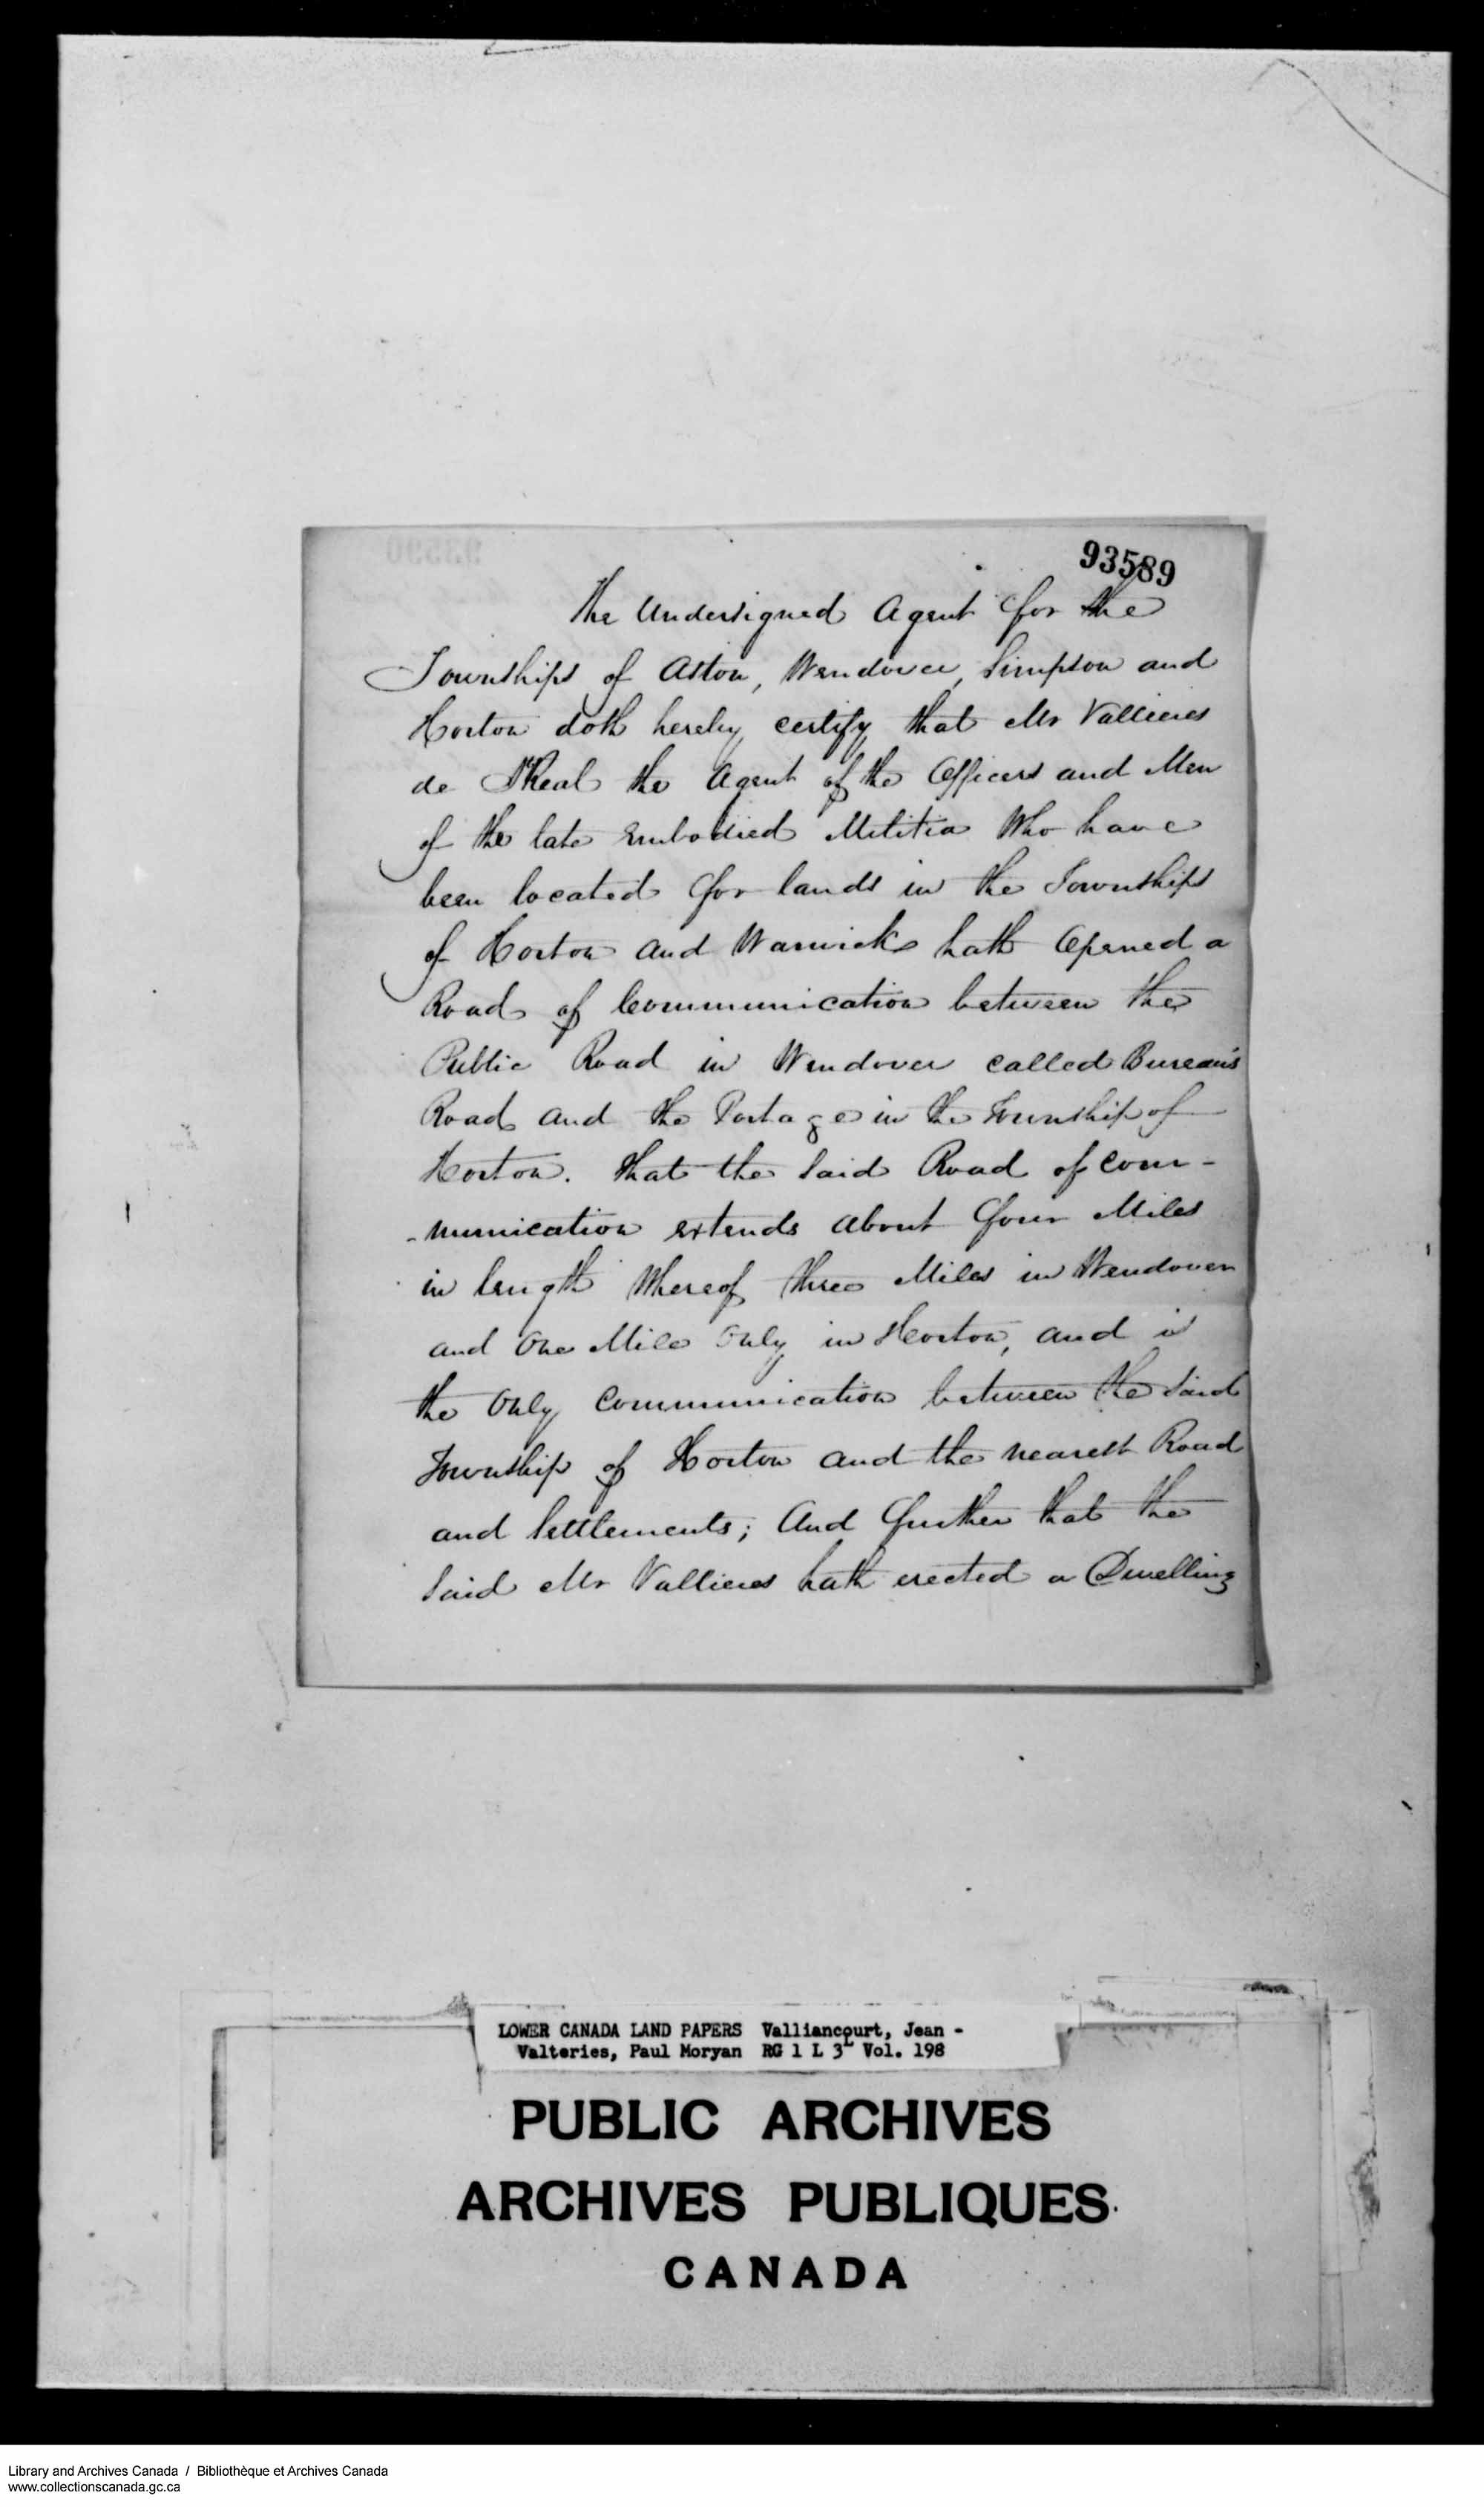 93589
The Undersigned Agent for the
Townships of Aston, Wendover, Simpson and
Horton doth hereby certify that Mr Vallieres
de St Real the Agent of the Officers and Men
of the late Embodied Militia Who have
been located for lands in the Townships
of Horton and Warwick hath Opened a
Road of Communication between the
Public Road in Wendover called Bureau's
Road and the Portage in the Township of
Horton. That the Said Road of Com-
-munication extends about four Miles
in length Whereof three Miles in Wendover
and One Mile Only in Horton, and is
the Only Communication between the Said
Township of Horton and the nearest Road
and Settlements; And further that the
Said Mr Vallieres hath erected a Dwelling
LOWER CANADA LAND PAPERS Valliancourt, Jean -
Valteries, Paul Moryan RG 1 L 3L Vol. 198
PUBLIC ARCHIVES
ARCHIVES PUBLIQUES
CANADA
Library and Archives Canada / Bibliothèque et Archives Canada
www.collectionscanada.gc.ca